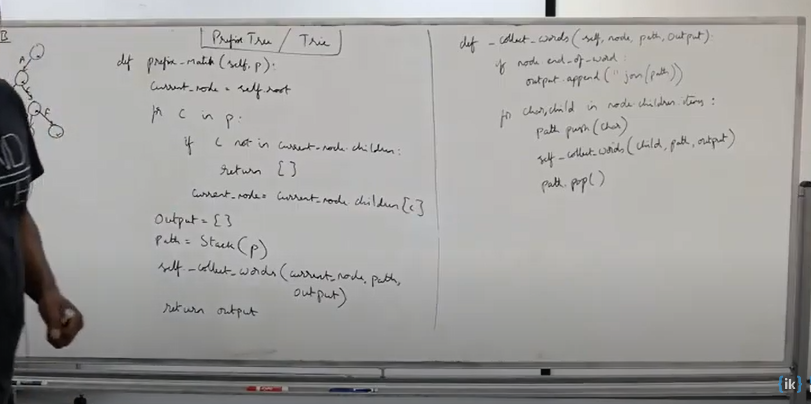 Prefix Tree / Trie
def prefix_match(self, p):
current_node = self.root
for c in p:
if c not in current_node.children:
return []
current_node = current_node.children[c]
Output = []
Path = Stack(p)
self._collect_words(current_node, path,
output)
return output
def _collect_words(self, node, path, output):
if node.end_of_word:
output.append(''.join(path))
for char, child in node.children.items:
path.push(char)
self._collect_words(child, path, output)
path.pop()
{ik}